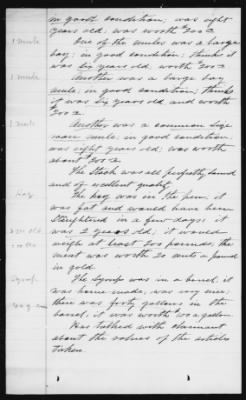 in good condition; was eight
years old; was worth $200 00
1 mule One of the mules was a large
bay; in good condition; think it
was six years old; worth $200 00
1 mule Another was a large bay
mule; in good condition; think
it was six years old and worth
200 00
1 mule Another was a common size
mule; in good condition;
was eight years old; was worth
about $200 00
The Stock was all perfectly sound
and of excellent quality.
Hog The hog was in the pen; it
was fat and would have been
slaughtered in a few days; it
was 2 years old; it would
weigh at least 200 pounds; the
meat was worth 20 cents a pound
in gold.
Syrup. The Syrup was in a barrel; it
was home made; was very nice;
there was forty gallons in the
barrel; it was worth $1 00 a gallon.
Has talked with claimant
about the values of the articles
taken